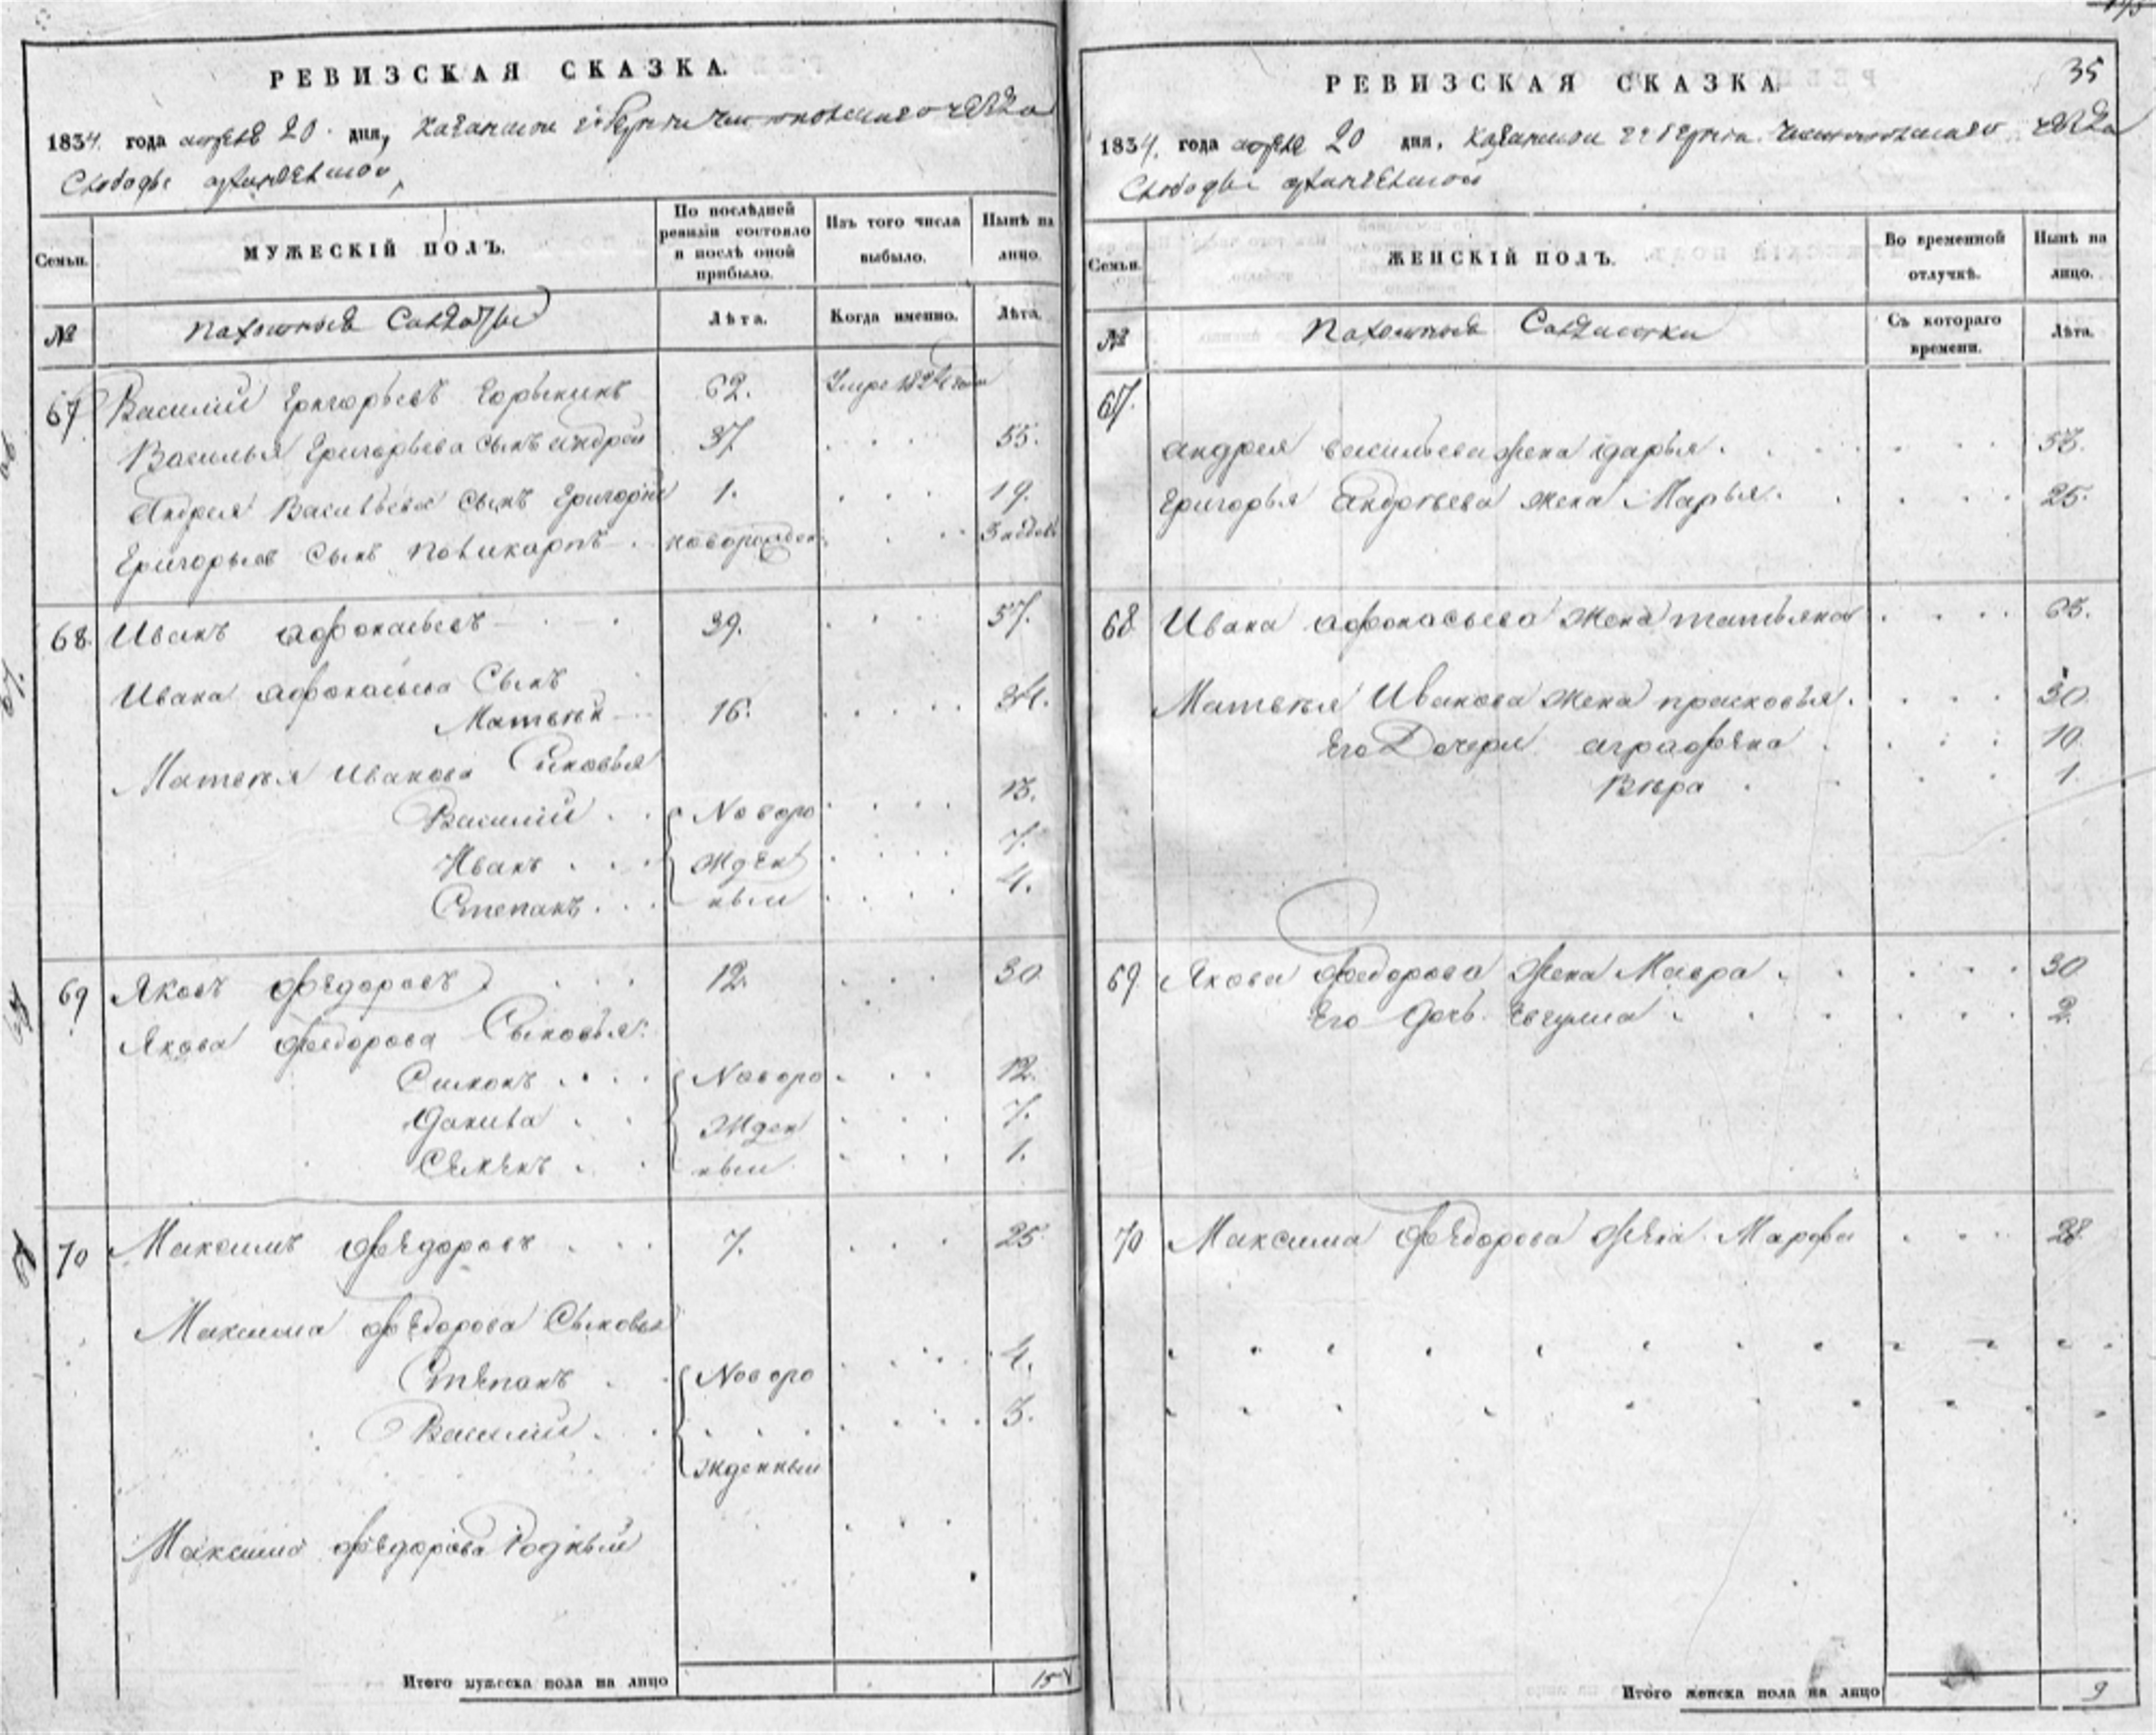 РЕВИЗСКАЯ СКАЗКА.
1834. года апреля 20. дня, Казанской губернии Чистопольскаго уезда
Слободы
Семьи.
МУЖЕСКІЙ ПОЛЪ.
По послѣдней ревизіи состояло и послѣ оной прибыло.
Изъ того числа выбыло.
Нынѣ на лицо.
№
Пахотные Солдаты
Лѣта.
Когда именно.
Лѣта.
67 Василий Григорьевъ Горыкинъ 62. Умре 182 года
Василья Григорьева сынъ Андрей 37. 55.
Андрея Васильева сынъ Григорий 1. 19.
Григорьев сынъ Поликарпъ новорожден 3 недел
68. Иванъ Афонасьевъ 39. 57.
Ивана Афонасьева Сынъ
Матвѣй 16. 34.
Матвѣя Иванова Сыновья
Василий Новоро 13.
Иванъ жден 7.
Степанъ ный 4.
69 Яковъ Федоровъ 12. 30
Якова Федорова Сыновья:
Симонъ Новоро 12.
Данила жден 7.
Семенъ ный 1.
70 Максимъ Федоровъ 7. 25
Максима Федорова Сыновья
Степанъ Новоро 4.
Василий 3.
жденный
Максима Федорова Родный
Итого мужеска пола на лицо 15
35
РЕВИЗСКАЯ СКАЗКА
1834. года апреля 20 дня. Казанской губернии Чистопольскаго уезда
Слободы
Семьи.
ЖЕНСКІЙ ПОЛЪ.
Во временной отлучкѣ.
Нынѣ на лицо.
№
Пахотные Солдатки
Съ котораго времени.
Лѣта.
67.
Андрея Васильева жена Дарья 53.
Григорья Андреева жена Марья. 25.
68 Ивана Афонасьева жена Татьяна 63.
Матвѣя Иванова жена Прасковья. 30
Его Дочери Аграфена 10
Вѣра 1
69 Якова Федорова жена Мавра 30
Его дочь 2.
70 Максима Федорова жена Марфа 28.
Итого женска пола на лицо 9